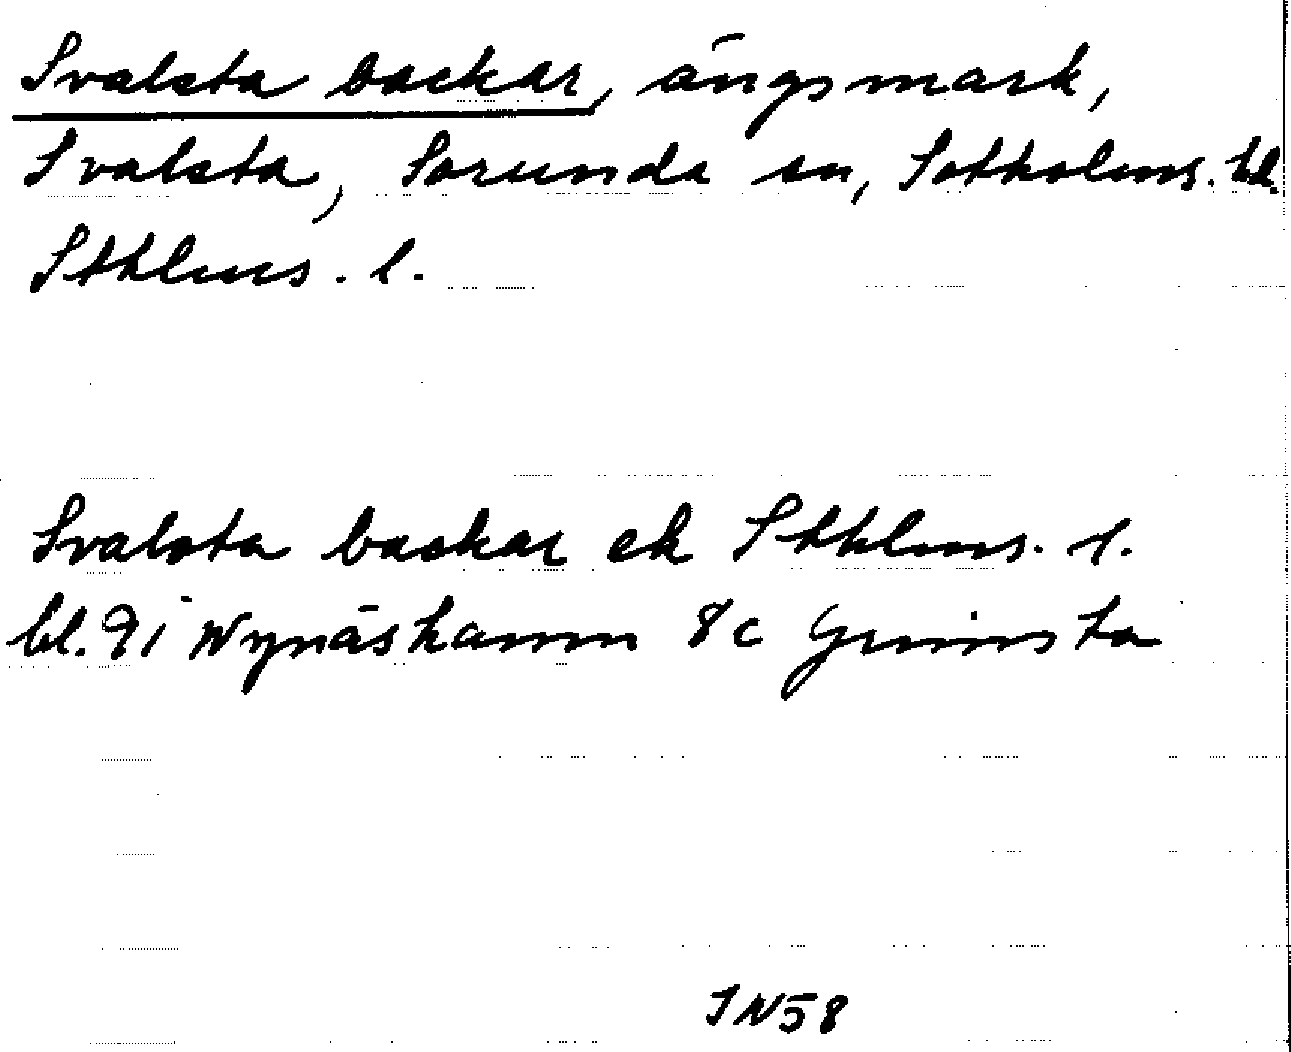 Svalsta backar, ängsmark,
Svalsta, Sorunda sn, Sotholms. hd.
Sthlms. l.
Svalsta backar ek Sthlms. l.
bl. 9i Nynäshamn 8c Grimsta
IN58